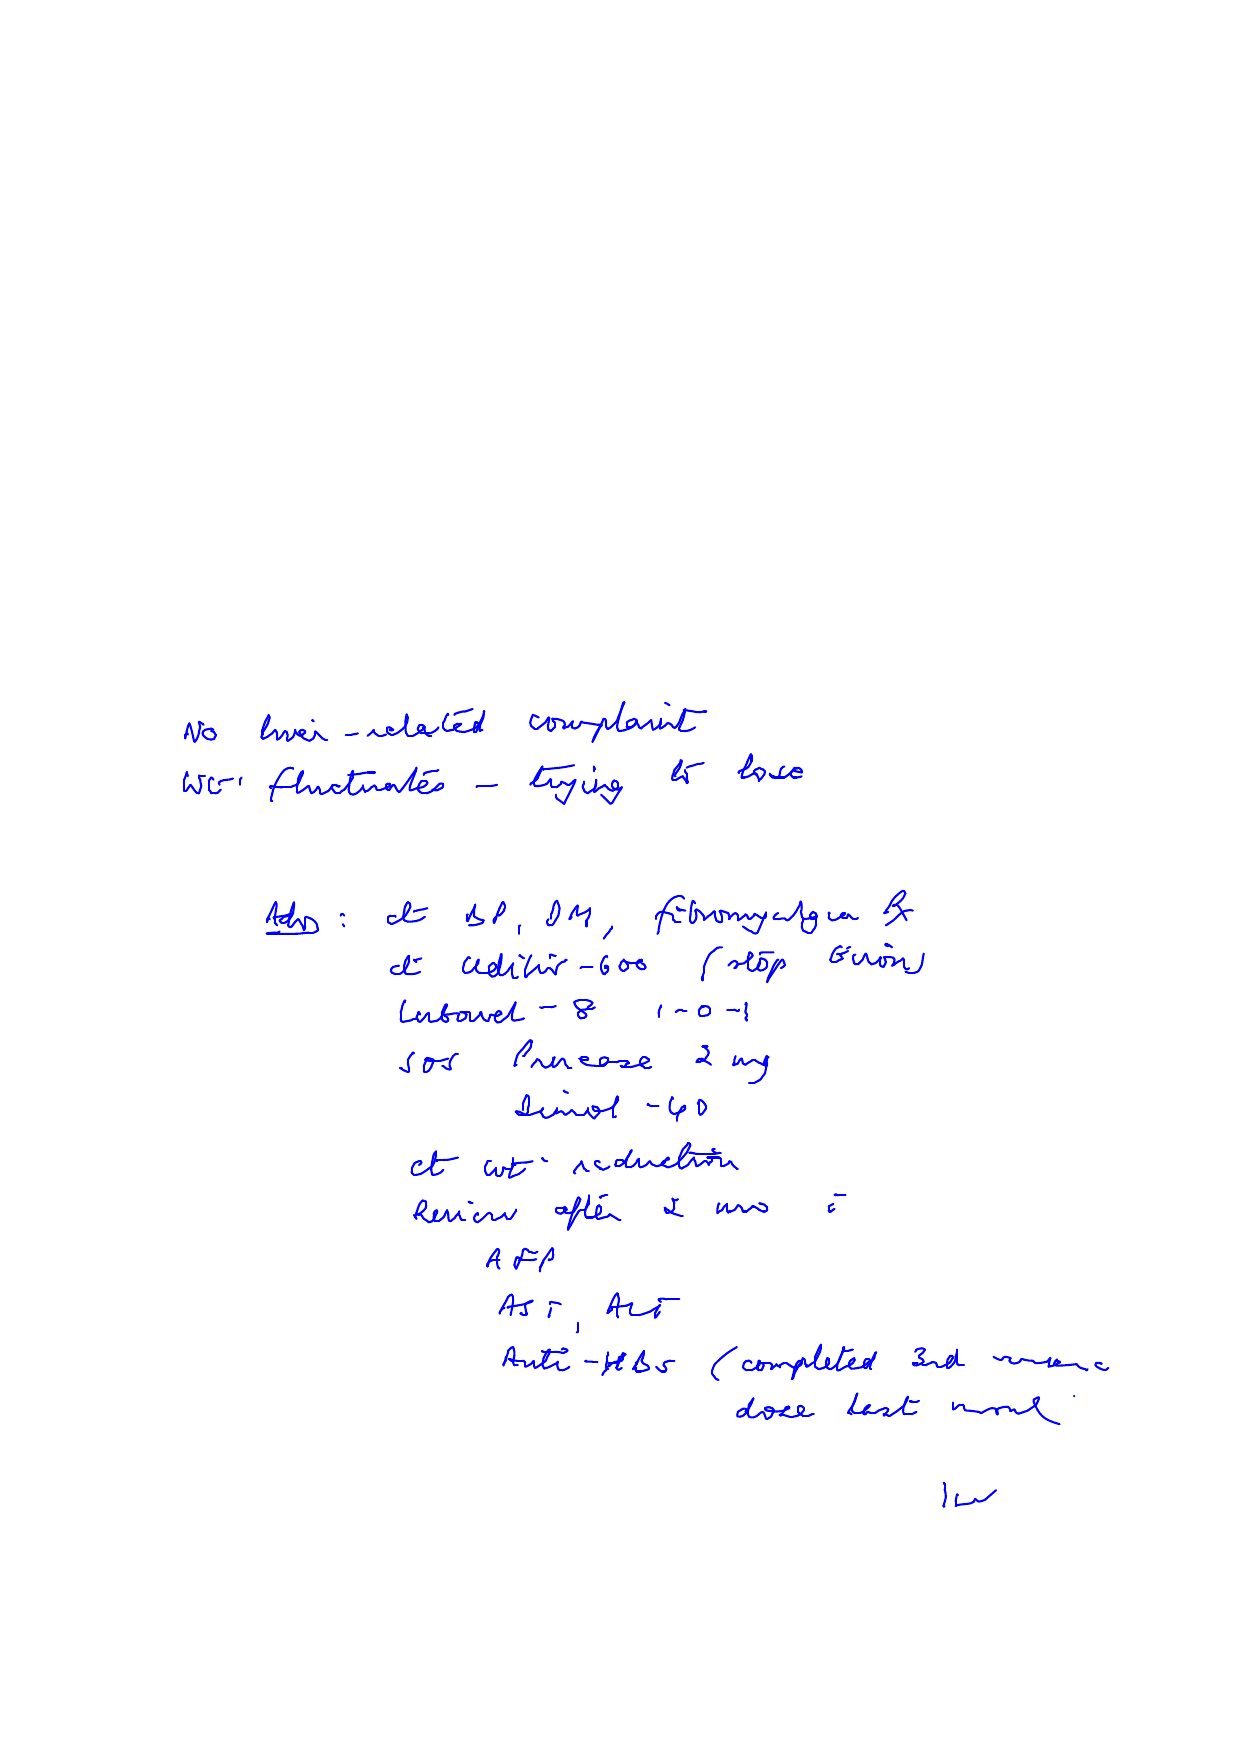 No liver-related complaint
Wt. fluctuates - trying to lose
Adv: ct BP, DM, fibromyalgia Rx
ct Udihiv-600 (stop Evion)
Lubowel-8 1-0-1
SOS Prucase 2 mg
-40
ct wt. reduction
Review after 2 mo c̄
AFP
AST, ALT
Anti-HBs (completed 3rd
dose last month